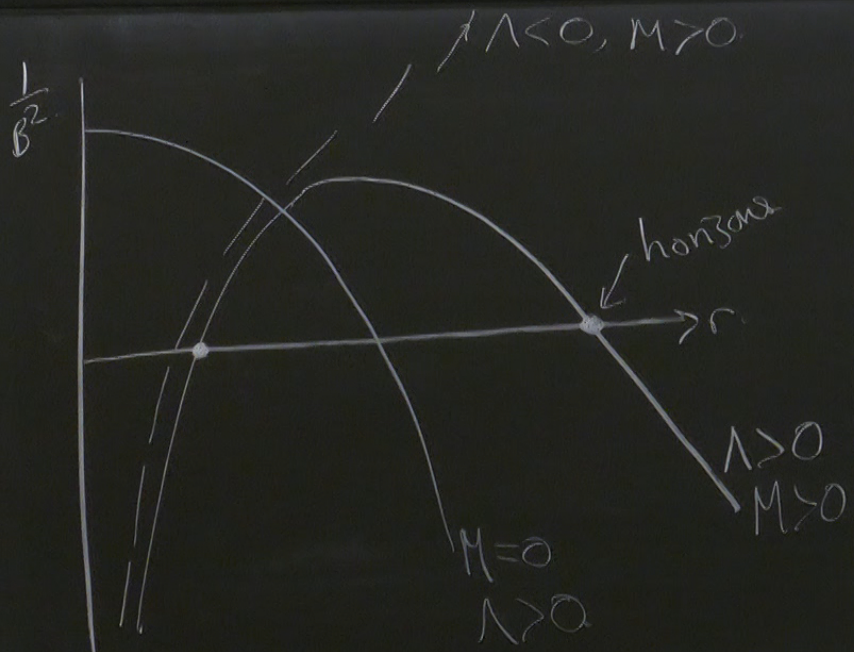 Λ<0, M>0
1/B²
horizons
r
Λ>0
M>0
M=0
Λ>0